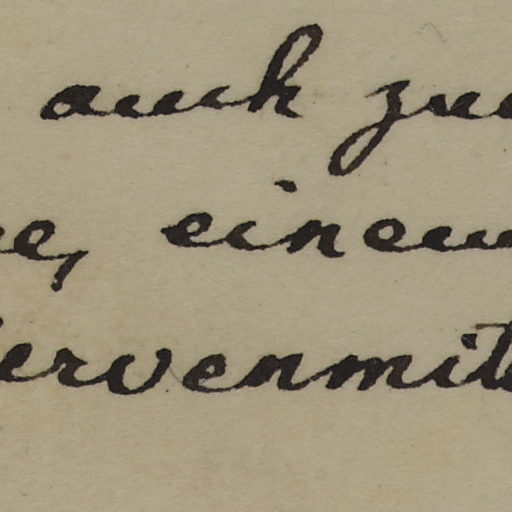 auch zu
e, einem
ervenmit